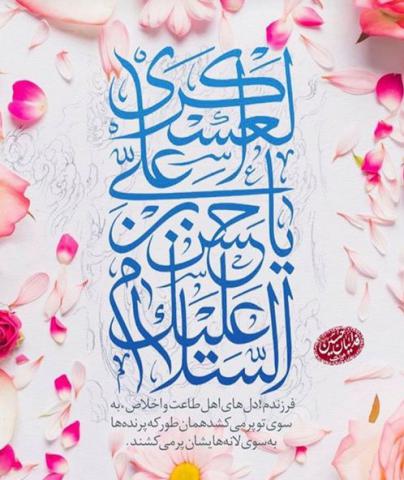 السلام علیك
یا حسن بن
علیّ
العسکری
فرزندم! دل‌های اهل طاعت و اخلاص، به
سوی تو پر می‌کشد همان طور که پرنده‌ها
به سوی لانه‌هایشان پر می‌کشند.